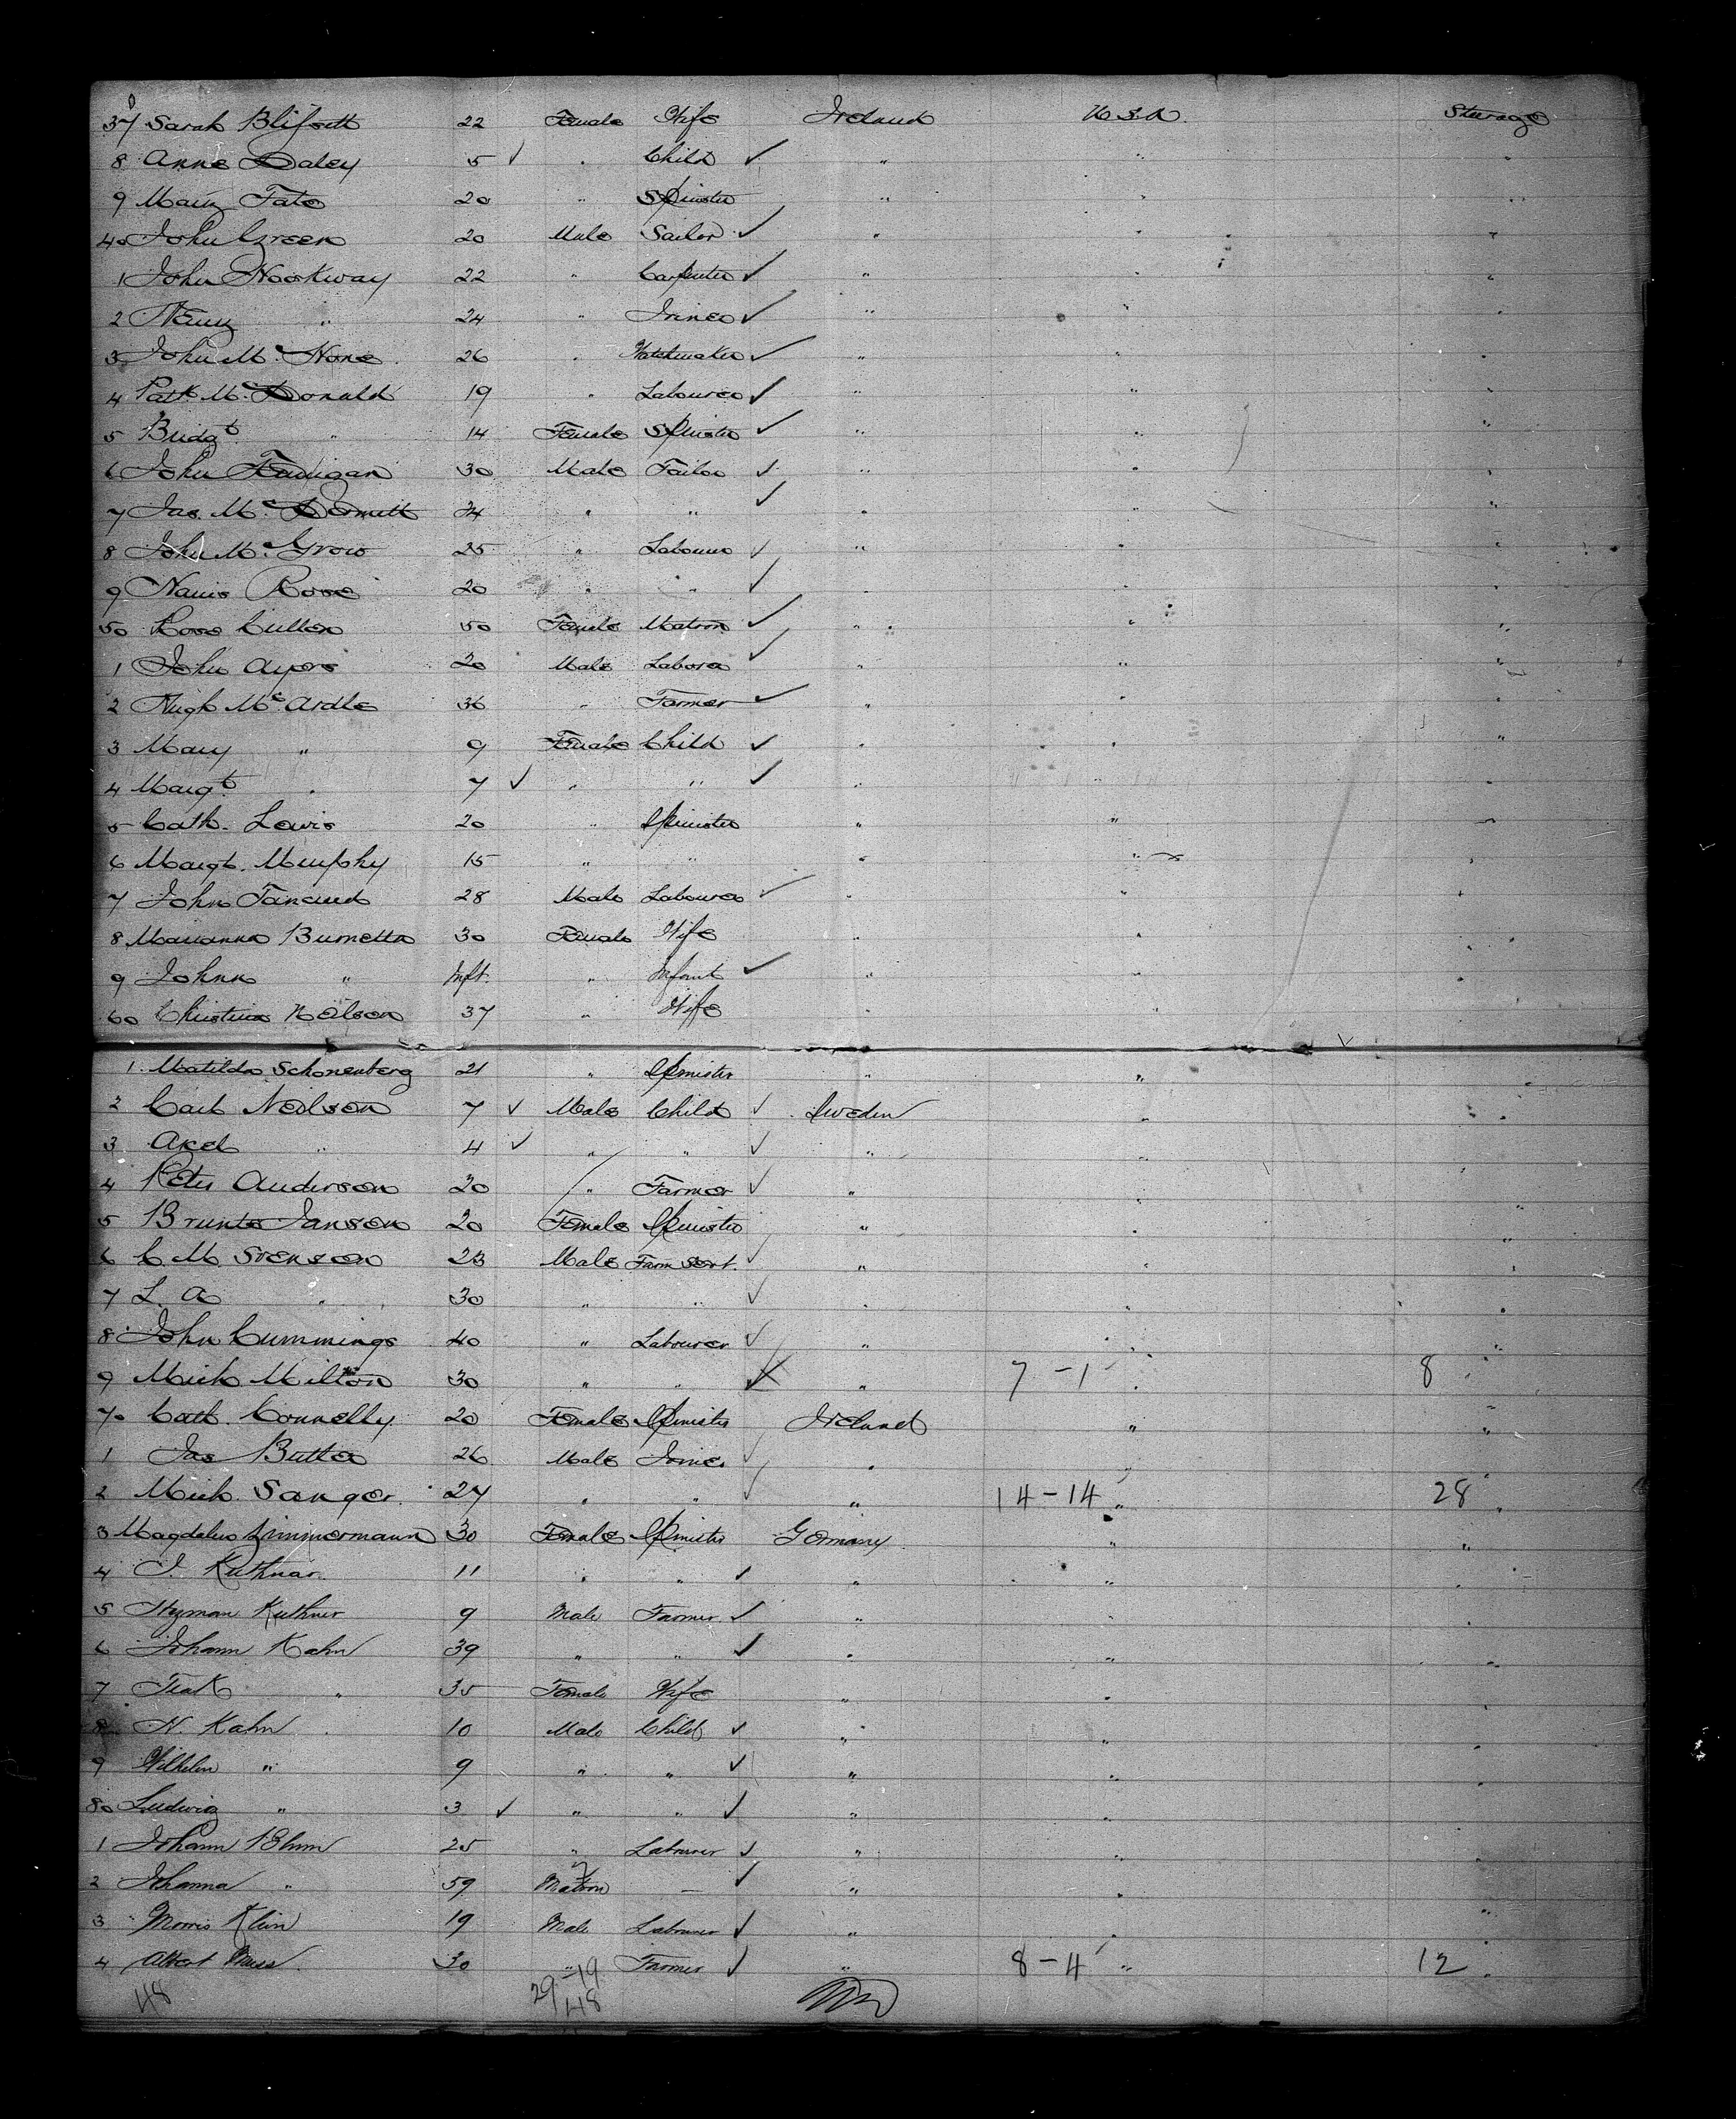 37 Sarah Blissett 22 Female Wife Ireland U.S.A. Steerage
8 Anne Daley 5 ✓ " Child ✓ " " "
9 Mary Tate 20 " Spinster " " "
40 John Green 20 Male Sailor ✓ " " "
1 John Hookway 22 " Carpenter ✓ " " "
2 Henry " 24 " Joiner ✓ " " "
3 John Mc. Hone 26 " Watchmaker ✓ " " "
4 Patk Mc. Donald 19 " Labourer ✓ " " "
5 Bridgt " 14 Female Spinster ✓ " " "
6 John Flanigan 30 Male Tailor ✓ " " "
7 Jas. Mc. Dermitt 34 " " ✓ " " "
8 John Mc. Grow 25 " Labourer ✓ " " "
9 Rose 20 " " ✓ " " "
50 Rose Cullen 50 Female Matron ✓ " " "
1 John Ayers 20 Male Laborer ✓ " " "
2 Hugh Mc. Ardle 36 " Farmer ✓ " " "
3 Mary " 9 Female Child ✓ " " "
4 Margt. " 7 ✓ " " ✓ " " "
5 Cath. Lewis 20 " Spinster " " "
6 Margt. Murphy 15 " " " " "
7 John 28 Male Labourer ✓ " " "
8 Marianna Burnetta 30 Female Wife " " "
9 Johnn " Inft. " Infant ✓ " " "
60 Christina Neilson 37 " Wife " " "
1 Matilda Schonenberg 21 " Spinster " " "
2 Carl Neilson 7 ✓ Male Child ✓ Sweden " "
3 Axel " 4 ✓ " " ✓ " " "
4 Peter Anderson 20 " Farmer ✓ " " "
5 Janson 20 Female Spinster " " "
6 C. M. Svenson 23 Male Farm Servt. ✓ " " "
7 L. A " 30 " " ✓ " " "
8 John Cummings 40 " Labourer ✓ " " "
9 Mich Milton 30 " " ✓ " 7-1 " 8 "
70 Cath. Connelly 20 Female Spinster Ireland " "
1 Jas Butler 26 Male Joiner ✓ " " "
2 Mich. Sanger 27 " " ✓ " 14-14 " 28 "
3 Magdalena Zimmermann 30 Female Spinster Germany " "
4 J. Kuthnar 11 " " ✓ " " "
5 Hyman Kuthner 9 Male Farmer ✓ " " "
6 Johann Kahn 39 " " ✓ " " "
7 " 35 Female Wife " " "
8 N. Kahn 10 Male Child ✓ " " "
9 Wilhelm " 9 " " ✓ " " "
80 Ludwig " 3 ✓ " " ✓ " " "
1 Johann Blum 25 " Labourer ✓ " " "
2 Johanna " 59 Matron - ✓ " " "
3 Morris Klein 19 Male Labourer ✓ " " "
4 Albert 30 " Farmer ✓ " 8-4 " 12 "
48 29-19 48